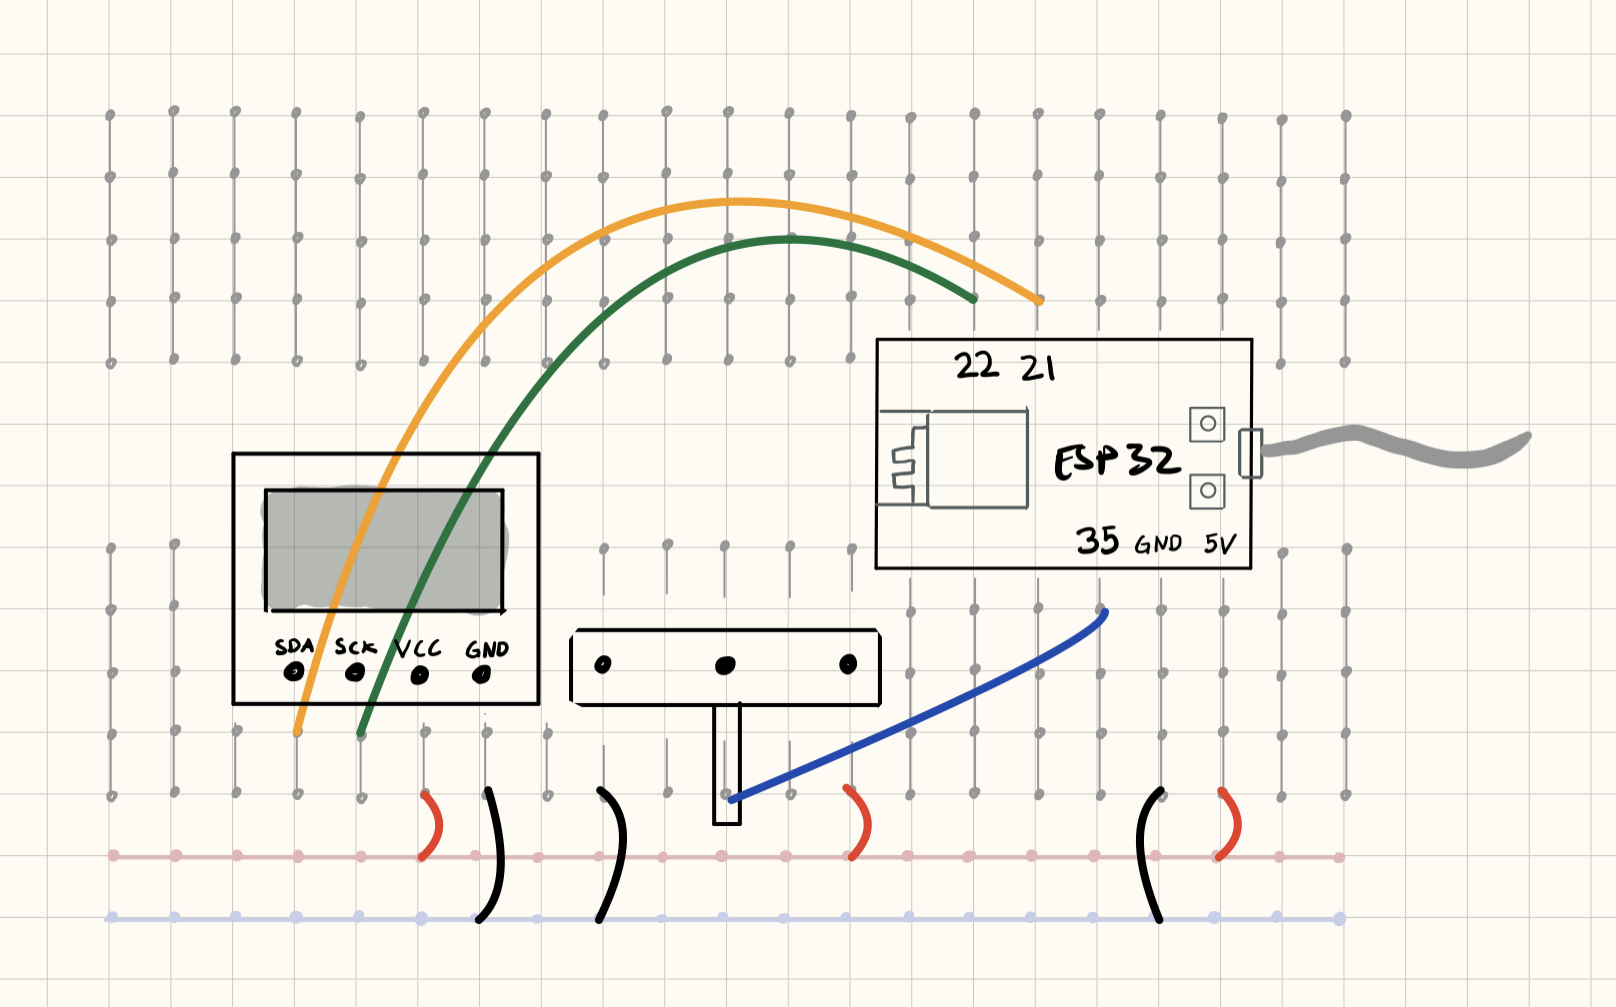 22 21
ESP32
35 GND 5V
SDA SCK VCC GND